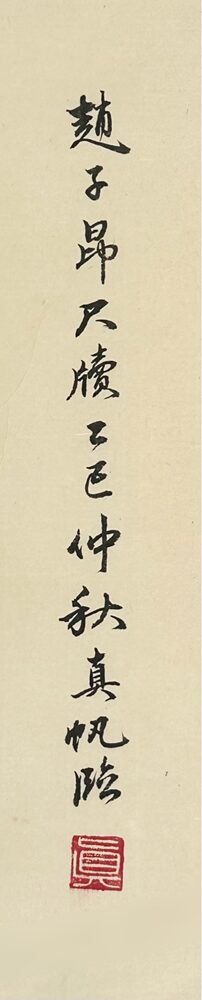 趙子昂尺牘乙巳仲秋真帆臨
真